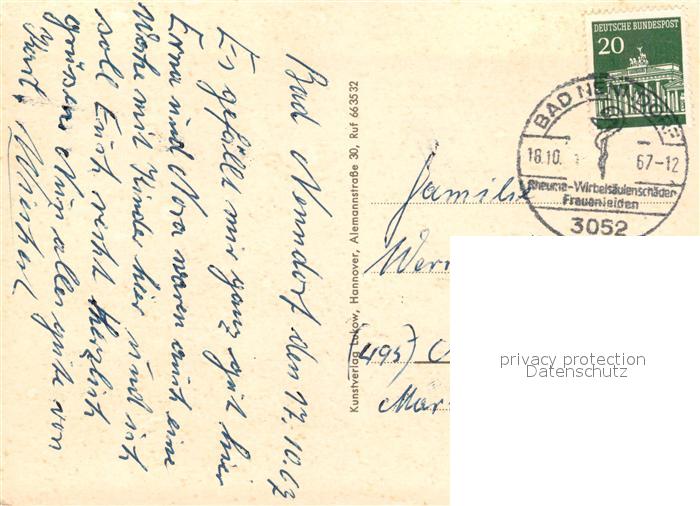 Bad Nenndorf den 17.10.67
Es gefällt mir ganz gut hier
Erna und Nora waren auch eine
Woche mit Kinder hier und ich
soll Euch recht Herzlich
grüßen Nun alles gute von
Kunstverlag Lukow, Hannover, Alemannstraße 30, Ruf 663532
DEUTSCHE BUNDESPOST
20
BAD NENNDORF
18.10. 67-12
Rheuma-Wirbelsäulenschäden
Frauenleiden
3052
Familie
Wer
(495)
privacy protection
Datenschutz